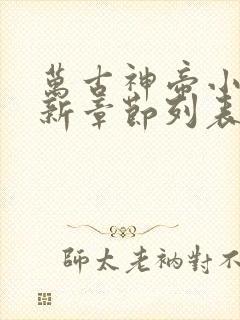 萬古神帝小
新章節列表
師太老衲對不